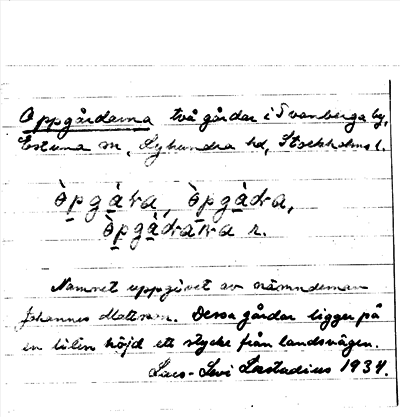 Oppgårdarna två gårdar i Svanberga by,
Estuna sn, Lyhundra hd, Stockholms l.
òpgàka, òpgàda,
òpgàdana r.
Namnet uppgivet av nämndeman
Johannes Mattsson. Dessa gårdar ligger på
en liten höjd ett stycke från landsvägen.
Lars-Levi Læstadius 1934.